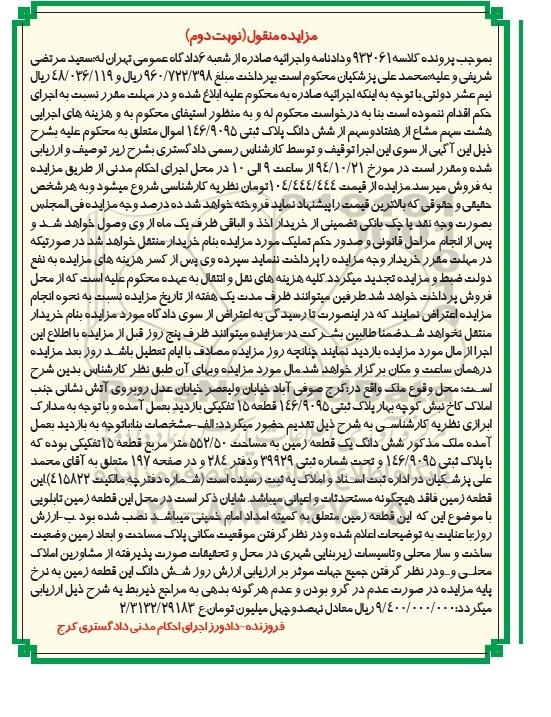 مزایده منقول(نوبت دوم)
بموجب پرونده کلاسه ۹۳۲۰۶۱ و دادنامه واجرائیه صادره از شعبه ۶دادگاه عمومی تهران له:سعید مرتضی
شریفی و علیه:محمد علی پزشکیان محکوم است بپرداخت مبلغ ۹۶۰/۷۲۲/۳۹۸ ریال و ۴۸/۰۳۶/۱۱۹ ریال
نیم عشر دولتی.با توجه به اینکه اجرائیه صادره به محکوم علیه ابلاغ شده و در مهلت مقرر نسبت به اجرای
حکم اقدام ننموده است بنا به درخواست محکوم له و به منظور استیفای محکوم به و هزینه های اجرایی
هشت سهم مشاع از هفتادوسهم از شش دانگ پلاک ثبتی ۱۴۶/۹۰۹۵ اموال متعلق به محکوم علیه بشرح
ذیل این آگهی از سوی این اجرا توقیف و توسط کارشناس رسمی دادگستری بشرح زیر توصیف و ارزیابی
شده ومقرر است در مورخ ۹۴/۱۰/۲۱ از ساعت ۹ الی ۱۰ در محل اجرای احکام مدنی از طریق مزایده
به فروش میرسد.مزایده از قیمت ۱۰۴/۴۴۴/۴۴۴ تومان نظریه کارشناسی شروع میشود وبه هرشخص
حقیقی و حقوقی که بالاترین قیمت را پیشنهاد نماید فروخته خواهد شد ده درصد وجه مزایده فی المجلس
بصورت وجه نقد یا چک بانکی تضمینی از خریدار اخذ و الباقی ظرف یک ماه از وی وصول خواهد شد و
پس از انجام مراحل قانونی و صدور حکم تملیک مورد مزایده بنام خریدار منتقل خواهد شد در صورتیکه
در مهلت مقرر خریدار وجه مزایده را پرداخت ننماید سپرده وی پس از کسر هزینه های مزایده به نفع
دولت ضبط و مزایده تجدید میگردد.کلیه هزینه های نقل و انتقال به عهده محکوم علیه است که از محل
فروش پرداخت خواهد شد.طرفین میتوانند ظرف مدت یک هفته از تاریخ مزایده نسبت به نحوه انجام
مزایده اعتراض نمایند که در اینصورت تا رسیدگی به اعتراض از سوی دادگاه مورد مزایده بنام خریدار
منتقل نخواهد شد.ضمنا طالبین بشرکت در مزایده میتوانند ظرف پنج روز قبل از مزایده با اطلاع این
اجرا از مال مورد مزایده بازدید نمایند .چنانچه روز مزایده مصادف با ایام تعطیل باشد روز بعد مزایده
درهمان ساعت و مکان برگزار خواهد شد.مال مورد مزایده وبهای آن طبق نظر کارشناس بدین شرح
است: محل وقوع ملک واقع در:کرج صوفی آباد خیابان ولیعصر خیابان عدل روبروی آتش نشانی جنب
املاک کاخ نبش کوچه بهار پلاک ثبتی ۱۴۶/۹۰۹۵ قطعه ۱۵ تفکیکی بازدید بعمل آمده و با توجه به مدارک
ابرازی نظریه کارشناسی به شرح ذیل تقدیم حضور میگردد: الف-مشخصات بنا:باتوجه به بازدید بعمل
آمده ملک مذکور شش دانگ یک قطعه زمین به مساحت ۵۵۲/۵۰ متر مربع قطعه ۱۵تفکیکی بوده که
با پلاک ثبتی ۱۴۶/۹۰۹۵ و تحت شماره ثبتی ۳۹۹۲۹ ودفتر ۲۸۴ و در صفحه ۱۹۷ متعلق به آقای محمد
علی پزشکیان در اداره ثبت اسناد و املاک به ثبت رسیده است (شماره دفترچه مالکیت ۴۱۵۸۲۲).این
قطعه زمین فاقد هیچگونه مستحدثات و اعیانی میباشد.شایان ذکر است در محل این قطعه زمین تابلویی
با موضوع این که این قطعه زمین متعلق به کمیته امداد امام خمینی میباشد نصب شده بود .ب-ارزش
روز:با عنایت به توضیحات اعلام شده ودر نظر گرفتن موقعیت مکانی پلاک مساحت و ابعاد زمین وضعیت
ساخت و ساز محلی وتاسیسات زیربنایی شهری در محل و تحقیقات صورت پذیرفته از مشاورین املاک
محلی و..ودر نظر گرفتن جمیع جهات موثر بر ارزیابی ارزش روز شش دانگ این قطعه زمین به نرخ
پایه مزایده در صورت عدم در گرو بودن و عدم هرگونه بدهی به مراجع ذیربط یه شرح ذیل ارزیابی
میگردد:۹/۴۰۰/۰۰۰/۰۰۰ ریال معادل نهصدوچهل میلیون تومان.ع ۲/۳۱۳۲/۲۹۱۸۳
فروزنده-دادورز اجرای احکام مدنی دادگستری کرج